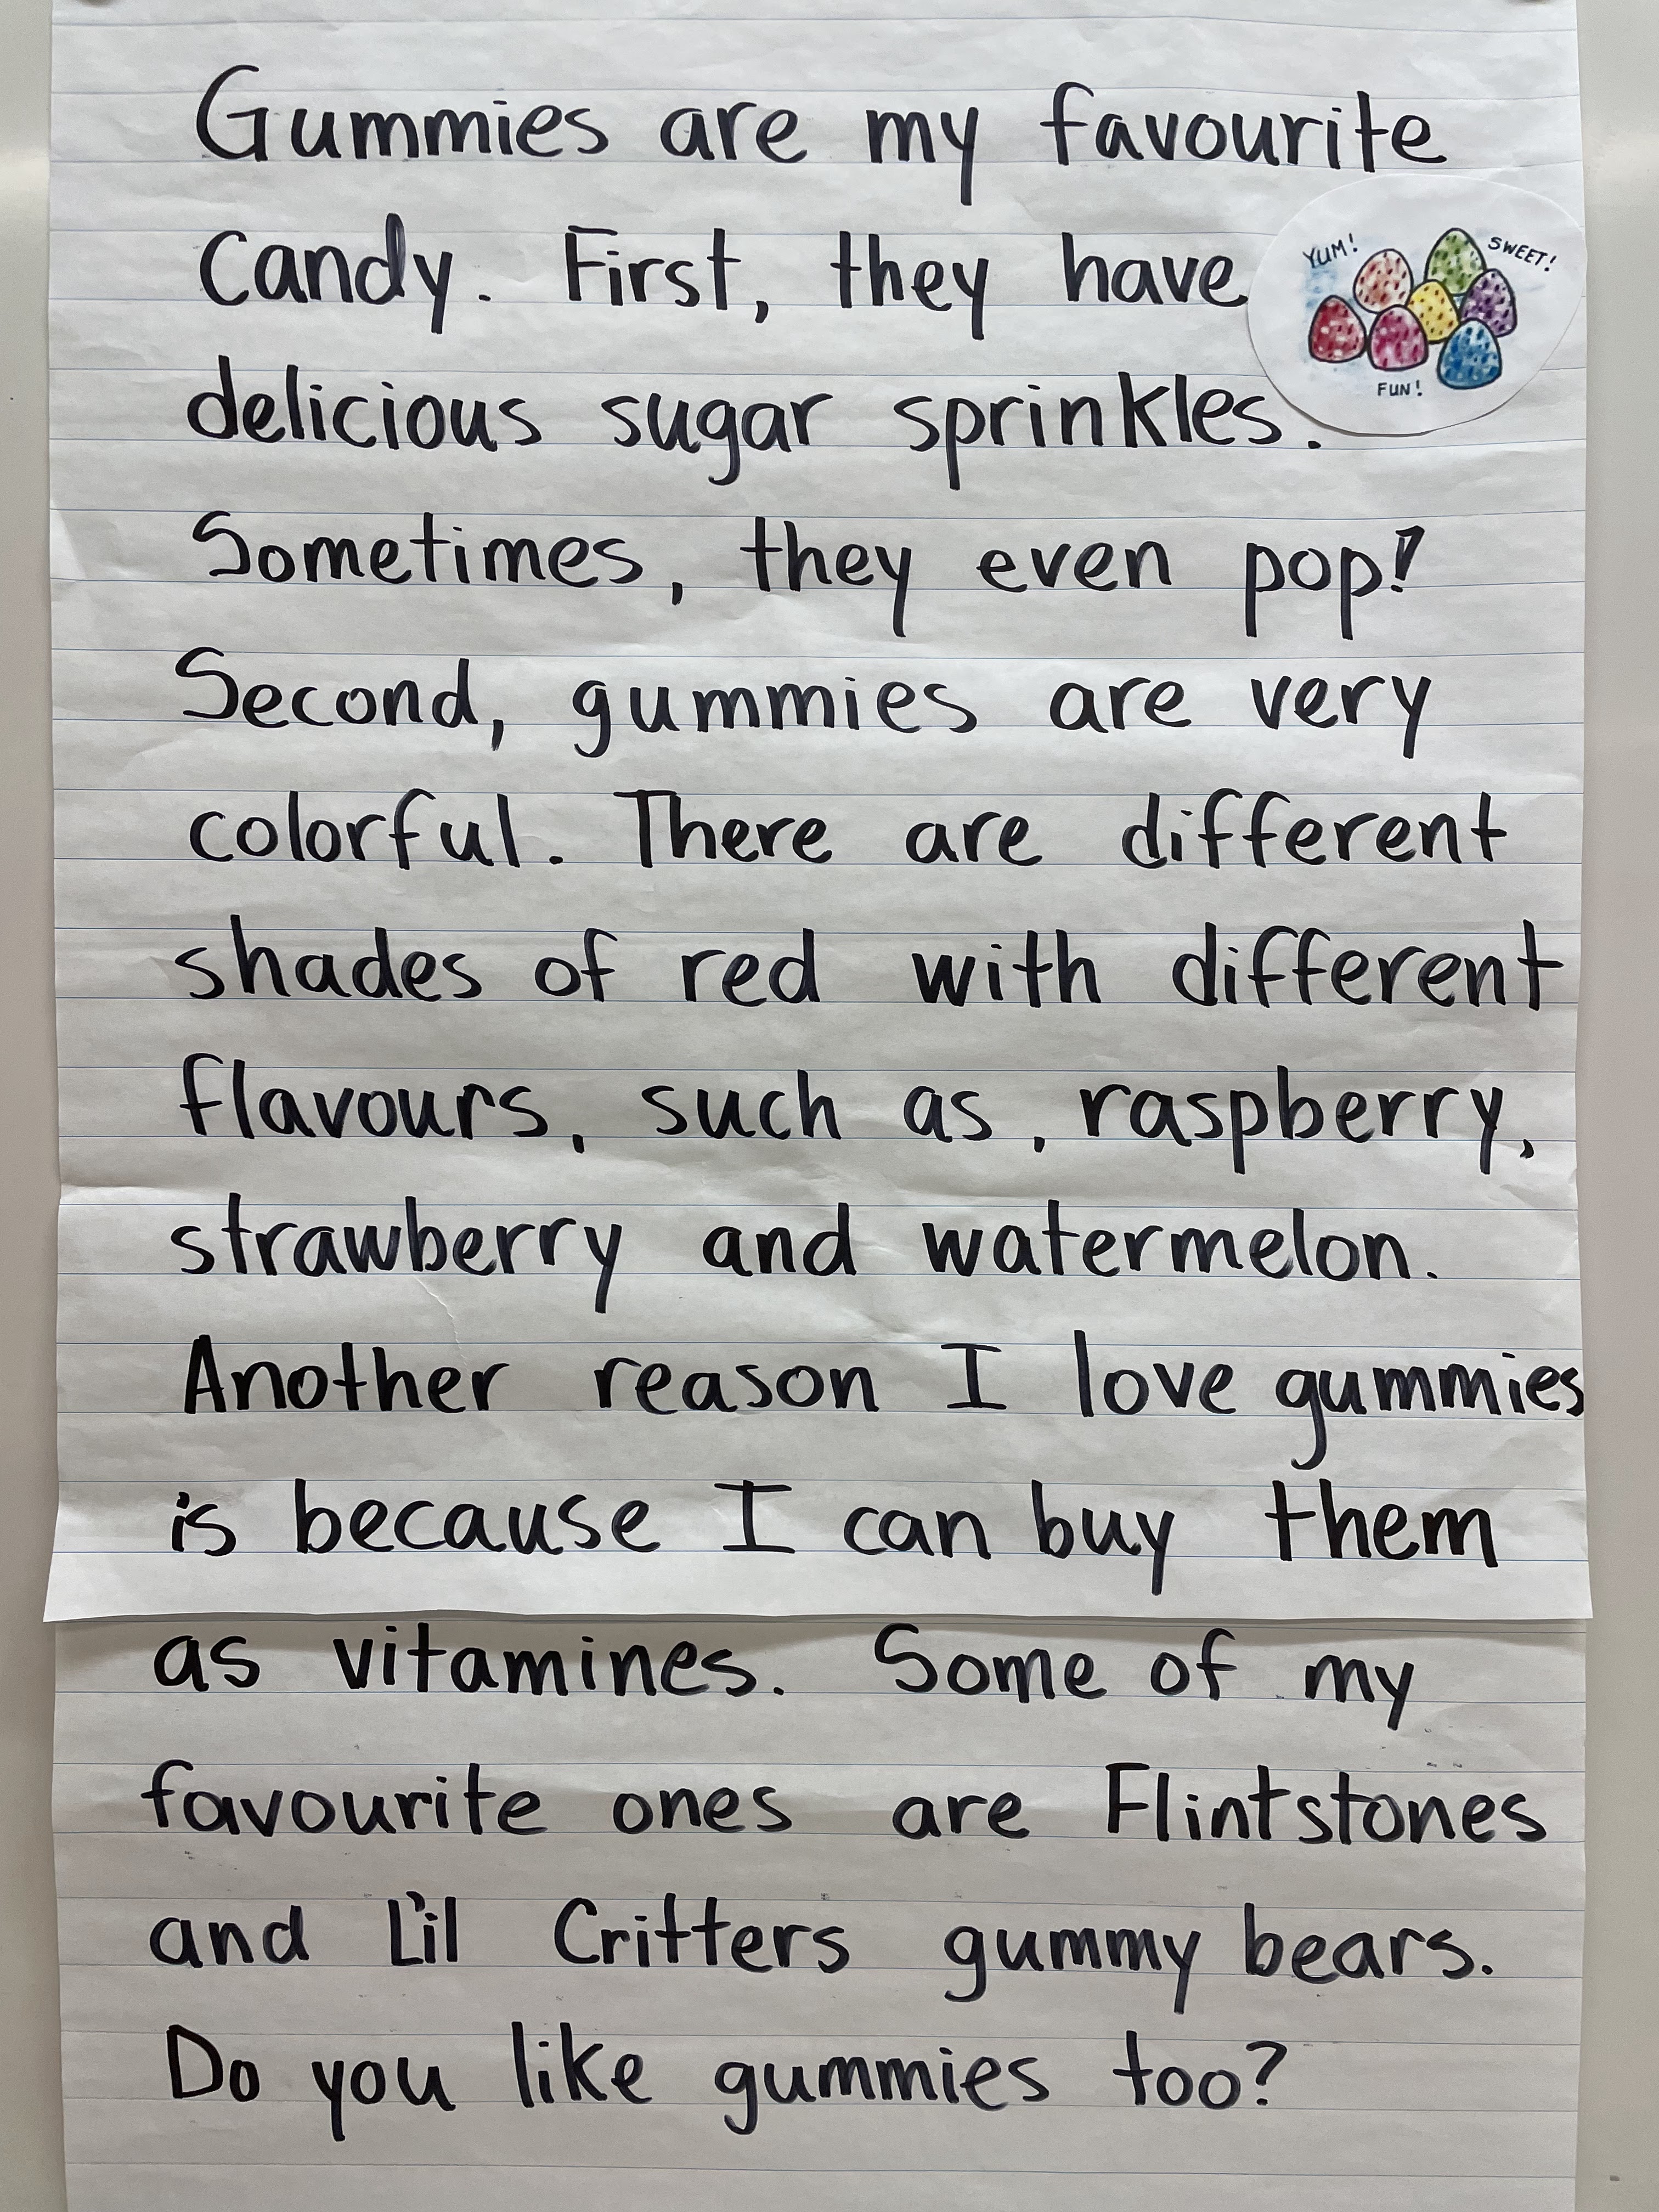 Gummies are my favourite
Candy. First, they have
YUM!
SWEET!
FUN!
delicious sugar sprinkles.
Sometimes, they even pop!
Second, gummies are very
colorful. There are different
shades of red with different
flavours, such as, raspberry,
strawberry and watermelon.
Another reason I love gummies
is because I can buy them
as vitamines. Some of my
favourite ones are Flintstones
and L'il Critters gummy bears.
Do you like gummies too?